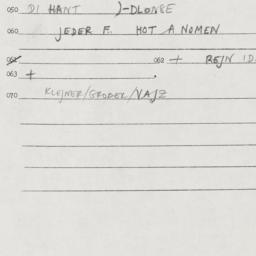 050 DI HANT )-DLONIE
060 JEDER F. HOT A NOMEN
061 062 + REJN ID
063 + .
070 KLEJNER/GROBER/VAJZ